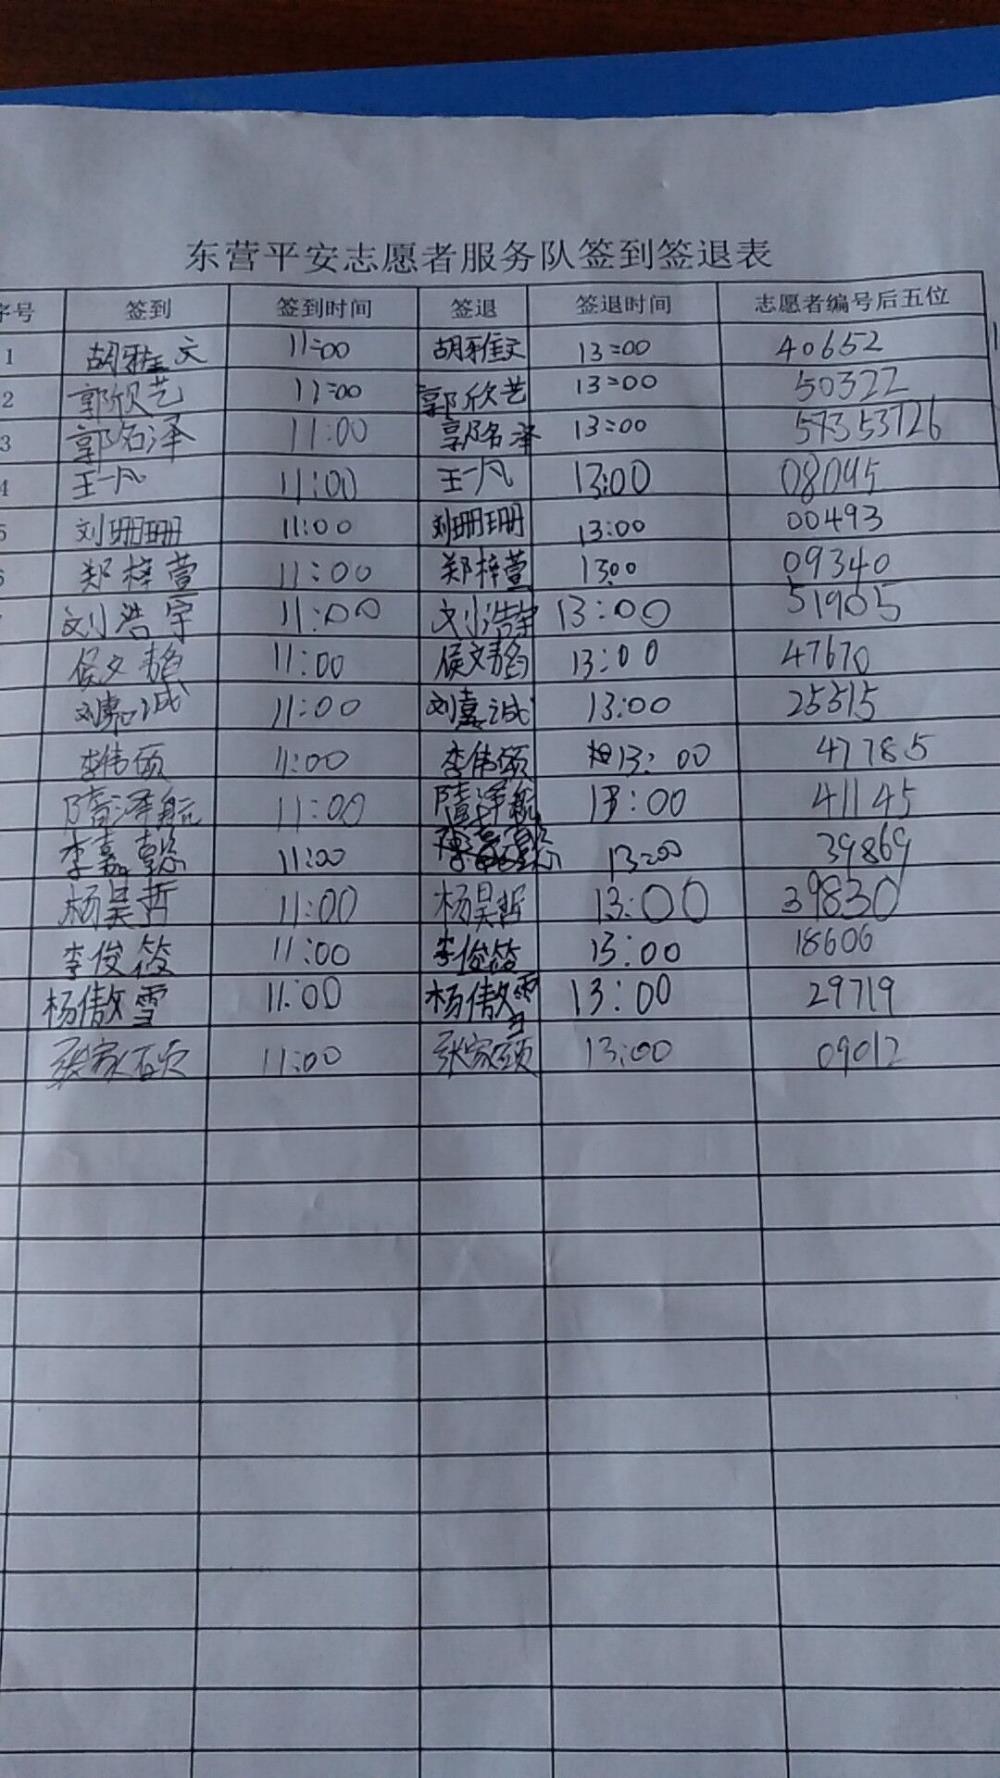 东营平安志愿者服务队签到签退表
序号 签到 签到时间 签退 签退时间 志愿者编号后五位
1 胡雅文 11:00 胡雅文 13:00 40652
2 郭欣艺 11:00 郭欣艺 13:00 50322
3 郭名泽 11:00 郭名泽 13:00
4 王一凡 11:00 王一凡 13:00 08045
5 刘珊珊 11:00 刘珊珊 13:00 00493
6 郑梓萱 11:00 郑梓萱 1300 09340
刘浩宇 11:00 刘浩宇 13:00 51905
侯文韬 11:00 侯文韬 13:00 47670
刘嘉诚 11:00 刘嘉诚 13:00 25515
李伟硕 11:00 李伟硕 13:00 47785
隋泽航 11:00 隋泽航 13:00 41145
李嘉懿 11:00 13:00 39869
杨昊哲 11:00 杨昊哲 13:00 39830
李俊筱 11:00 李俊筱 13:00 18606
杨傲雪 11:00 杨傲雪 13:00 29719
张家硕 11:00 张家硕 13:00 09012